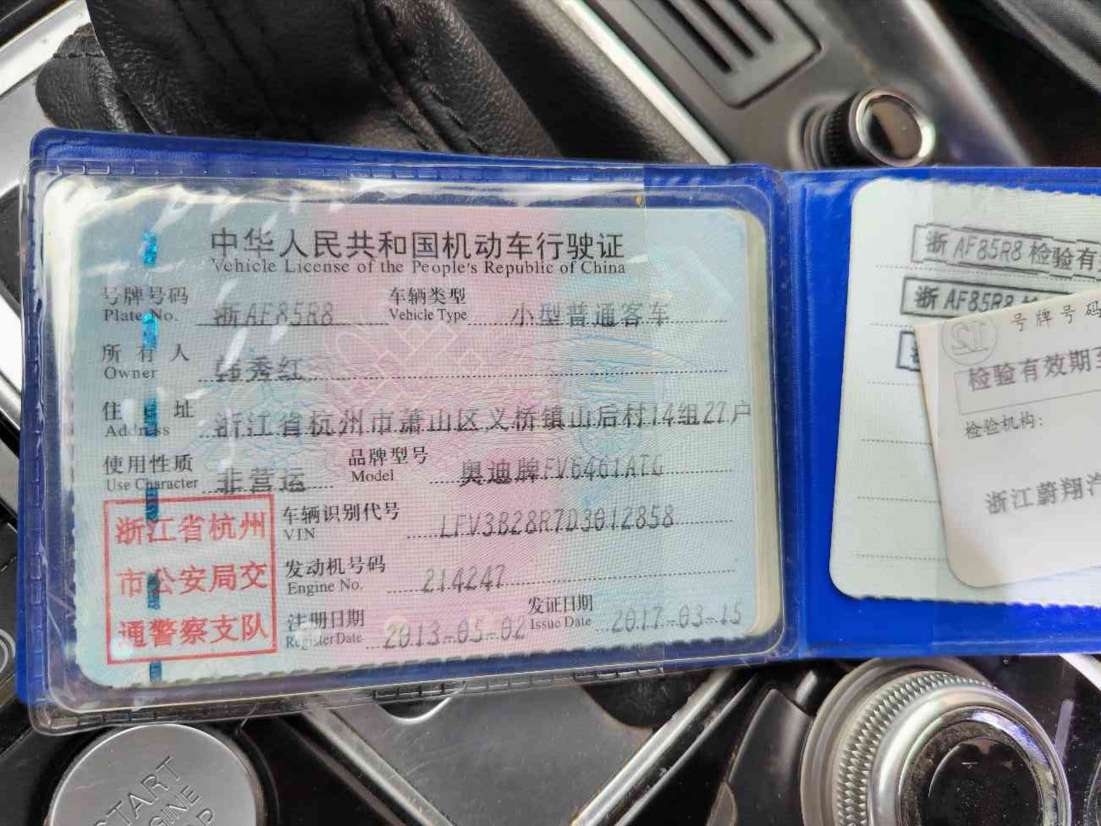 中华人民共和国机动车行驶证
Vehicle License of the People's Republic of China
号牌号码 浙AF85R8 车辆类型 小型普通客车
Plate No. Vehicle Type
所有人 韩秀红
Owner
住址 浙江省杭州市萧山区义桥镇山后村14组27户
Address
使用性质 非营运 品牌型号 奥迪牌FV6461ATG
Use Character Model
浙江省杭州
市公安局交
通警察支队
车辆识别代号 LFV3B28R7D3012858
VIN
发动机号码 214247
Engine No.
注册日期 2013-05-02 发证日期 2017-03-15
Register Date Issue Date
浙AF85R8 检验有
浙AF85R8
号牌号码
检验有效期至
检验机构:
浙江蔚翔汽
START